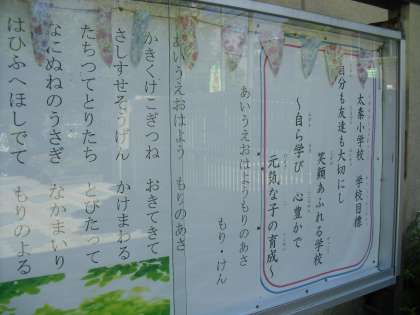 太秦小学校 学校目標
自分も友達も大切にし
笑顔あふれる学校
～自ら学び 心豊かで
元気な子の育成～
あいうえおはようもりのあさ
もり・けん
あいうえおはよう もりのあさ
かきくけこぎつね おきてきて
さしすせそうげん かけまわる
たちつてとりたち とびたって
なにぬねのうさぎ なかまいり
はひふへほしでて もりのよる